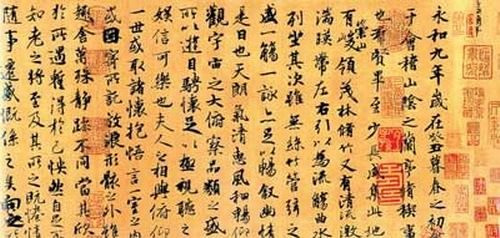 永和九年歲在癸丑暮春之初
于會稽山陰之蘭亭脩稧事
也群賢畢至少長咸集此地
有崇山峻領茂林脩竹又有清流激
湍暎帶左右引以為流觴曲水
列坐其次雖無絲竹管弦之
盛一觴一詠亦足以暢敘幽情
是日也天朗氣清惠風和暢仰
觀宇宙之大俯察品類之盛
所以遊目騁懷足以極視聽之
娛信可樂也夫人之相與俯仰
一世或取諸懷抱悟言一室之
或因寄所託放浪形骸之外雖
趣舍萬殊靜躁不同當其欣
於所遇暫得於己怏然自足
知老之將至及其所之既惓情
隨事遷感慨係之矣向之